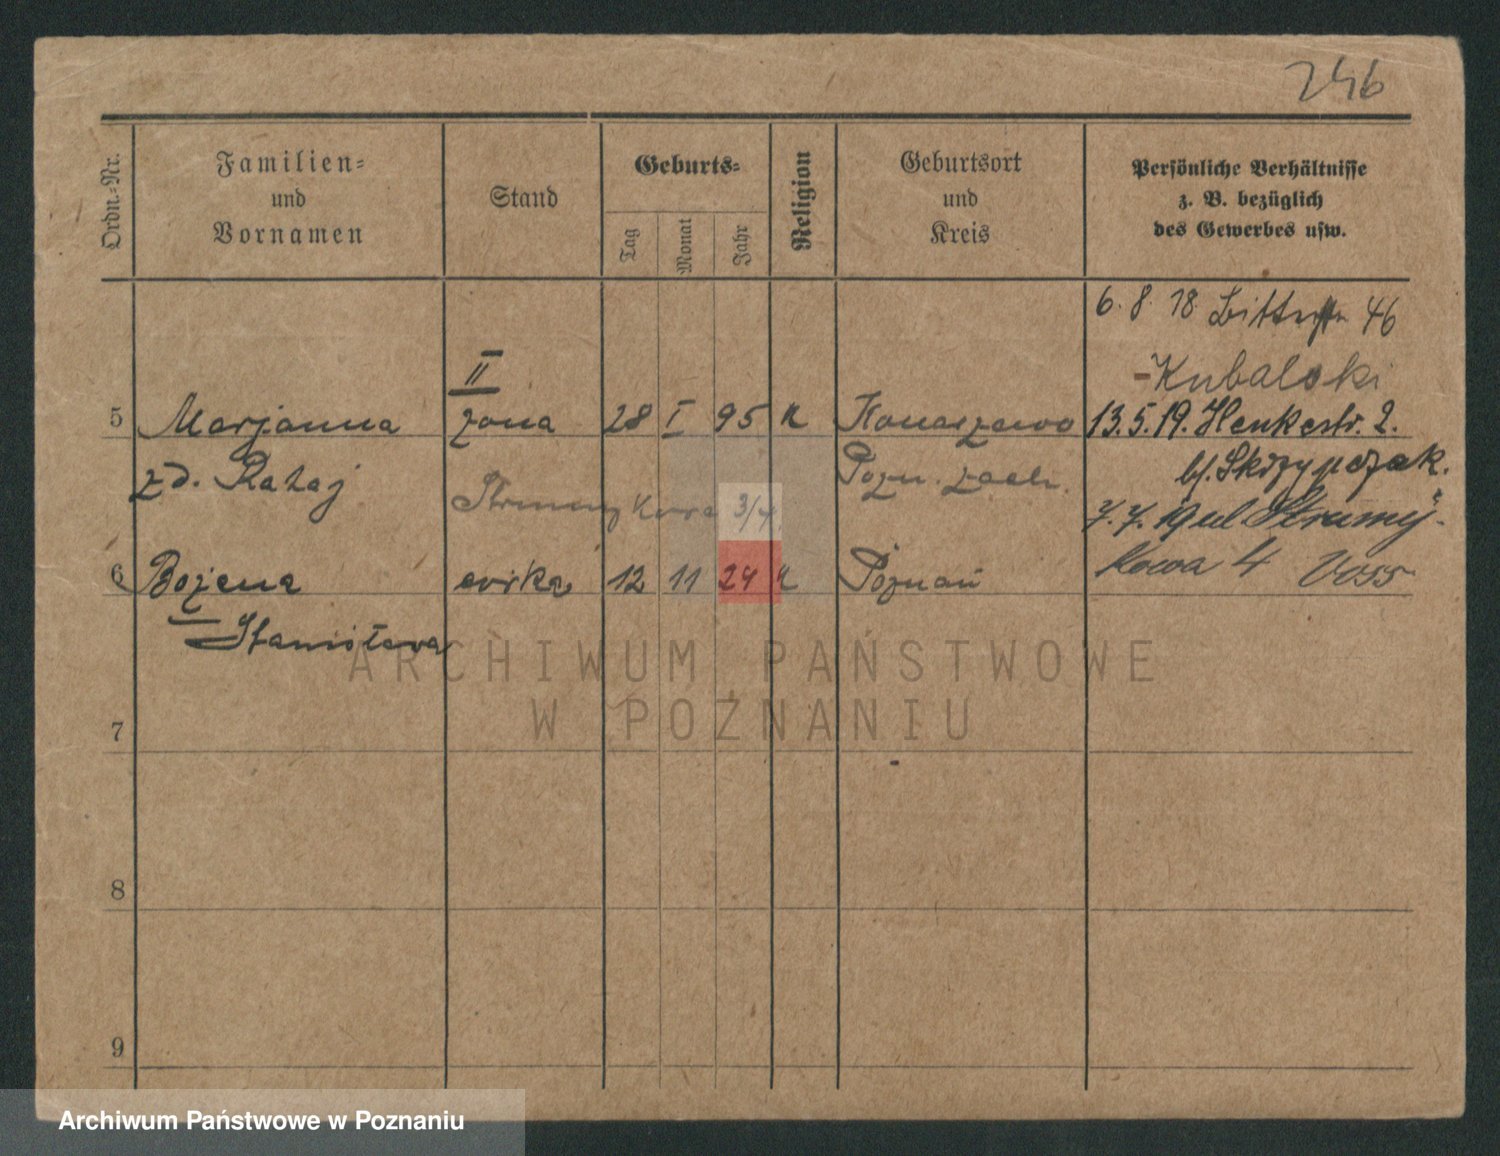 246
Ordn.-Nr.
Familien-
und
Vornamen
Stand
Geburts-
Tag
Monat
Jahr
Religion
Geburtsort
und
Kreis
Persönliche Verhältnisse
z. B. bezüglich
des Gewerbes usw.
6. 8. 18. 46
- Kubalski
II
5 Marjanna żona 28 I 95 K Konaszewo 13. 5. 19. Henkestr. 2.
zd. Rataj Pozn. zach. bj. Skrzypczak.
Strumykowa 3/4. 7. 7. 19 ul Strumy-
6 Bożena córka 12 11 24 K Poznań kowa 4 Voss
Stanisława
ARCHIWUM PAŃSTWOWE
W POZNANIU
7
8
9
Archiwum Państwowe w Poznaniu